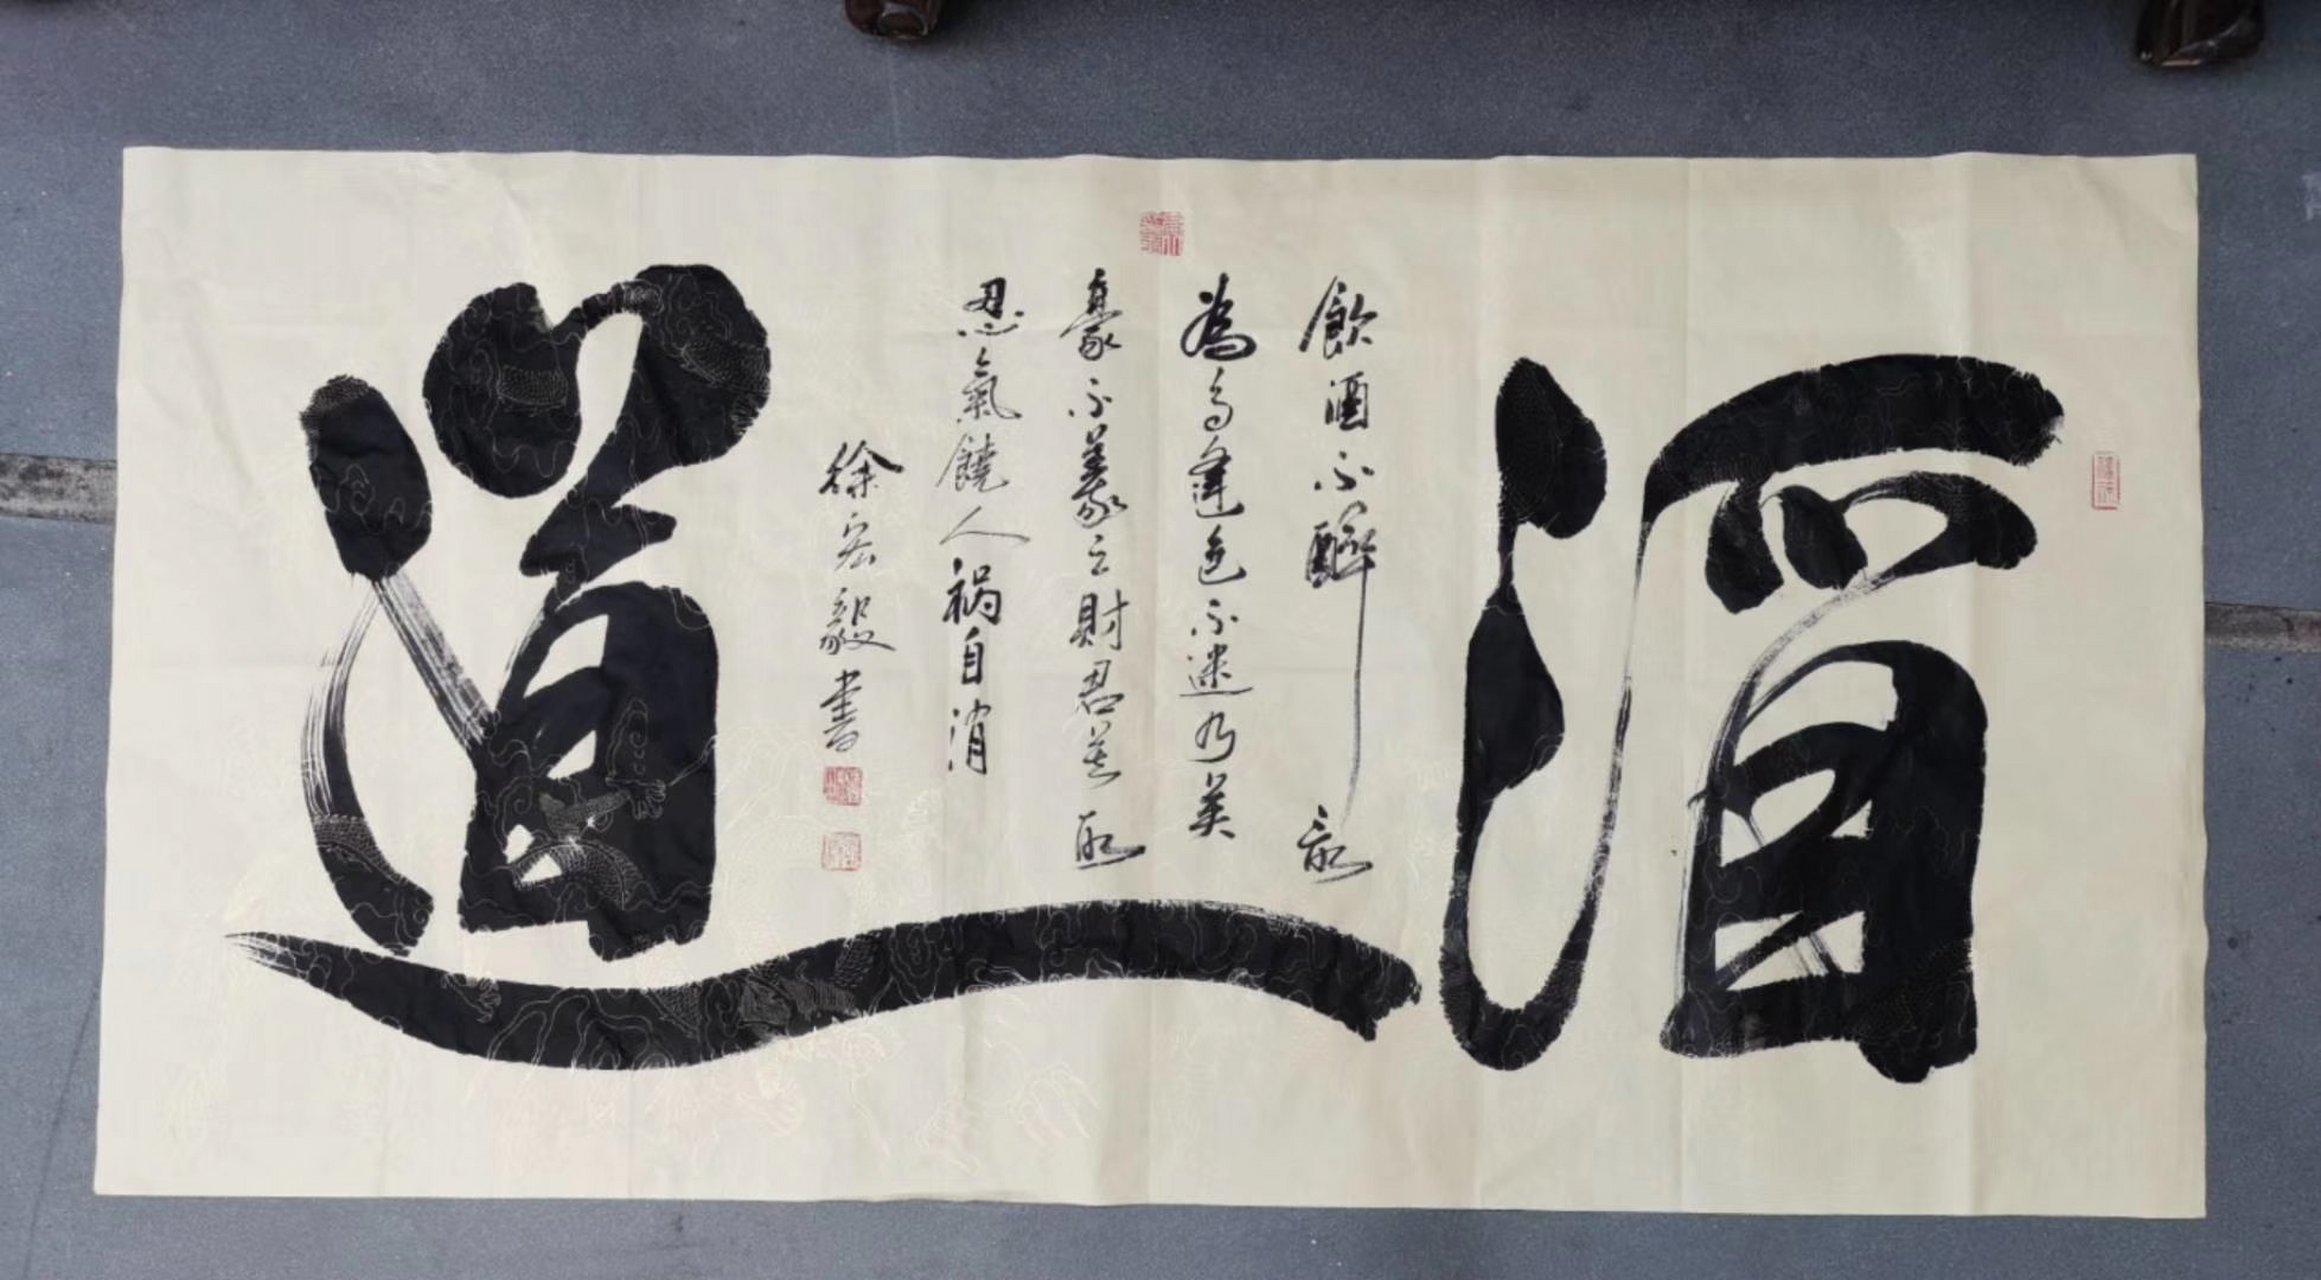 酒道
飲酒不醉最
為高逢色不迷乃英
豪不義之財君莫取
忍氣饒人祸自消
徐宏毅書